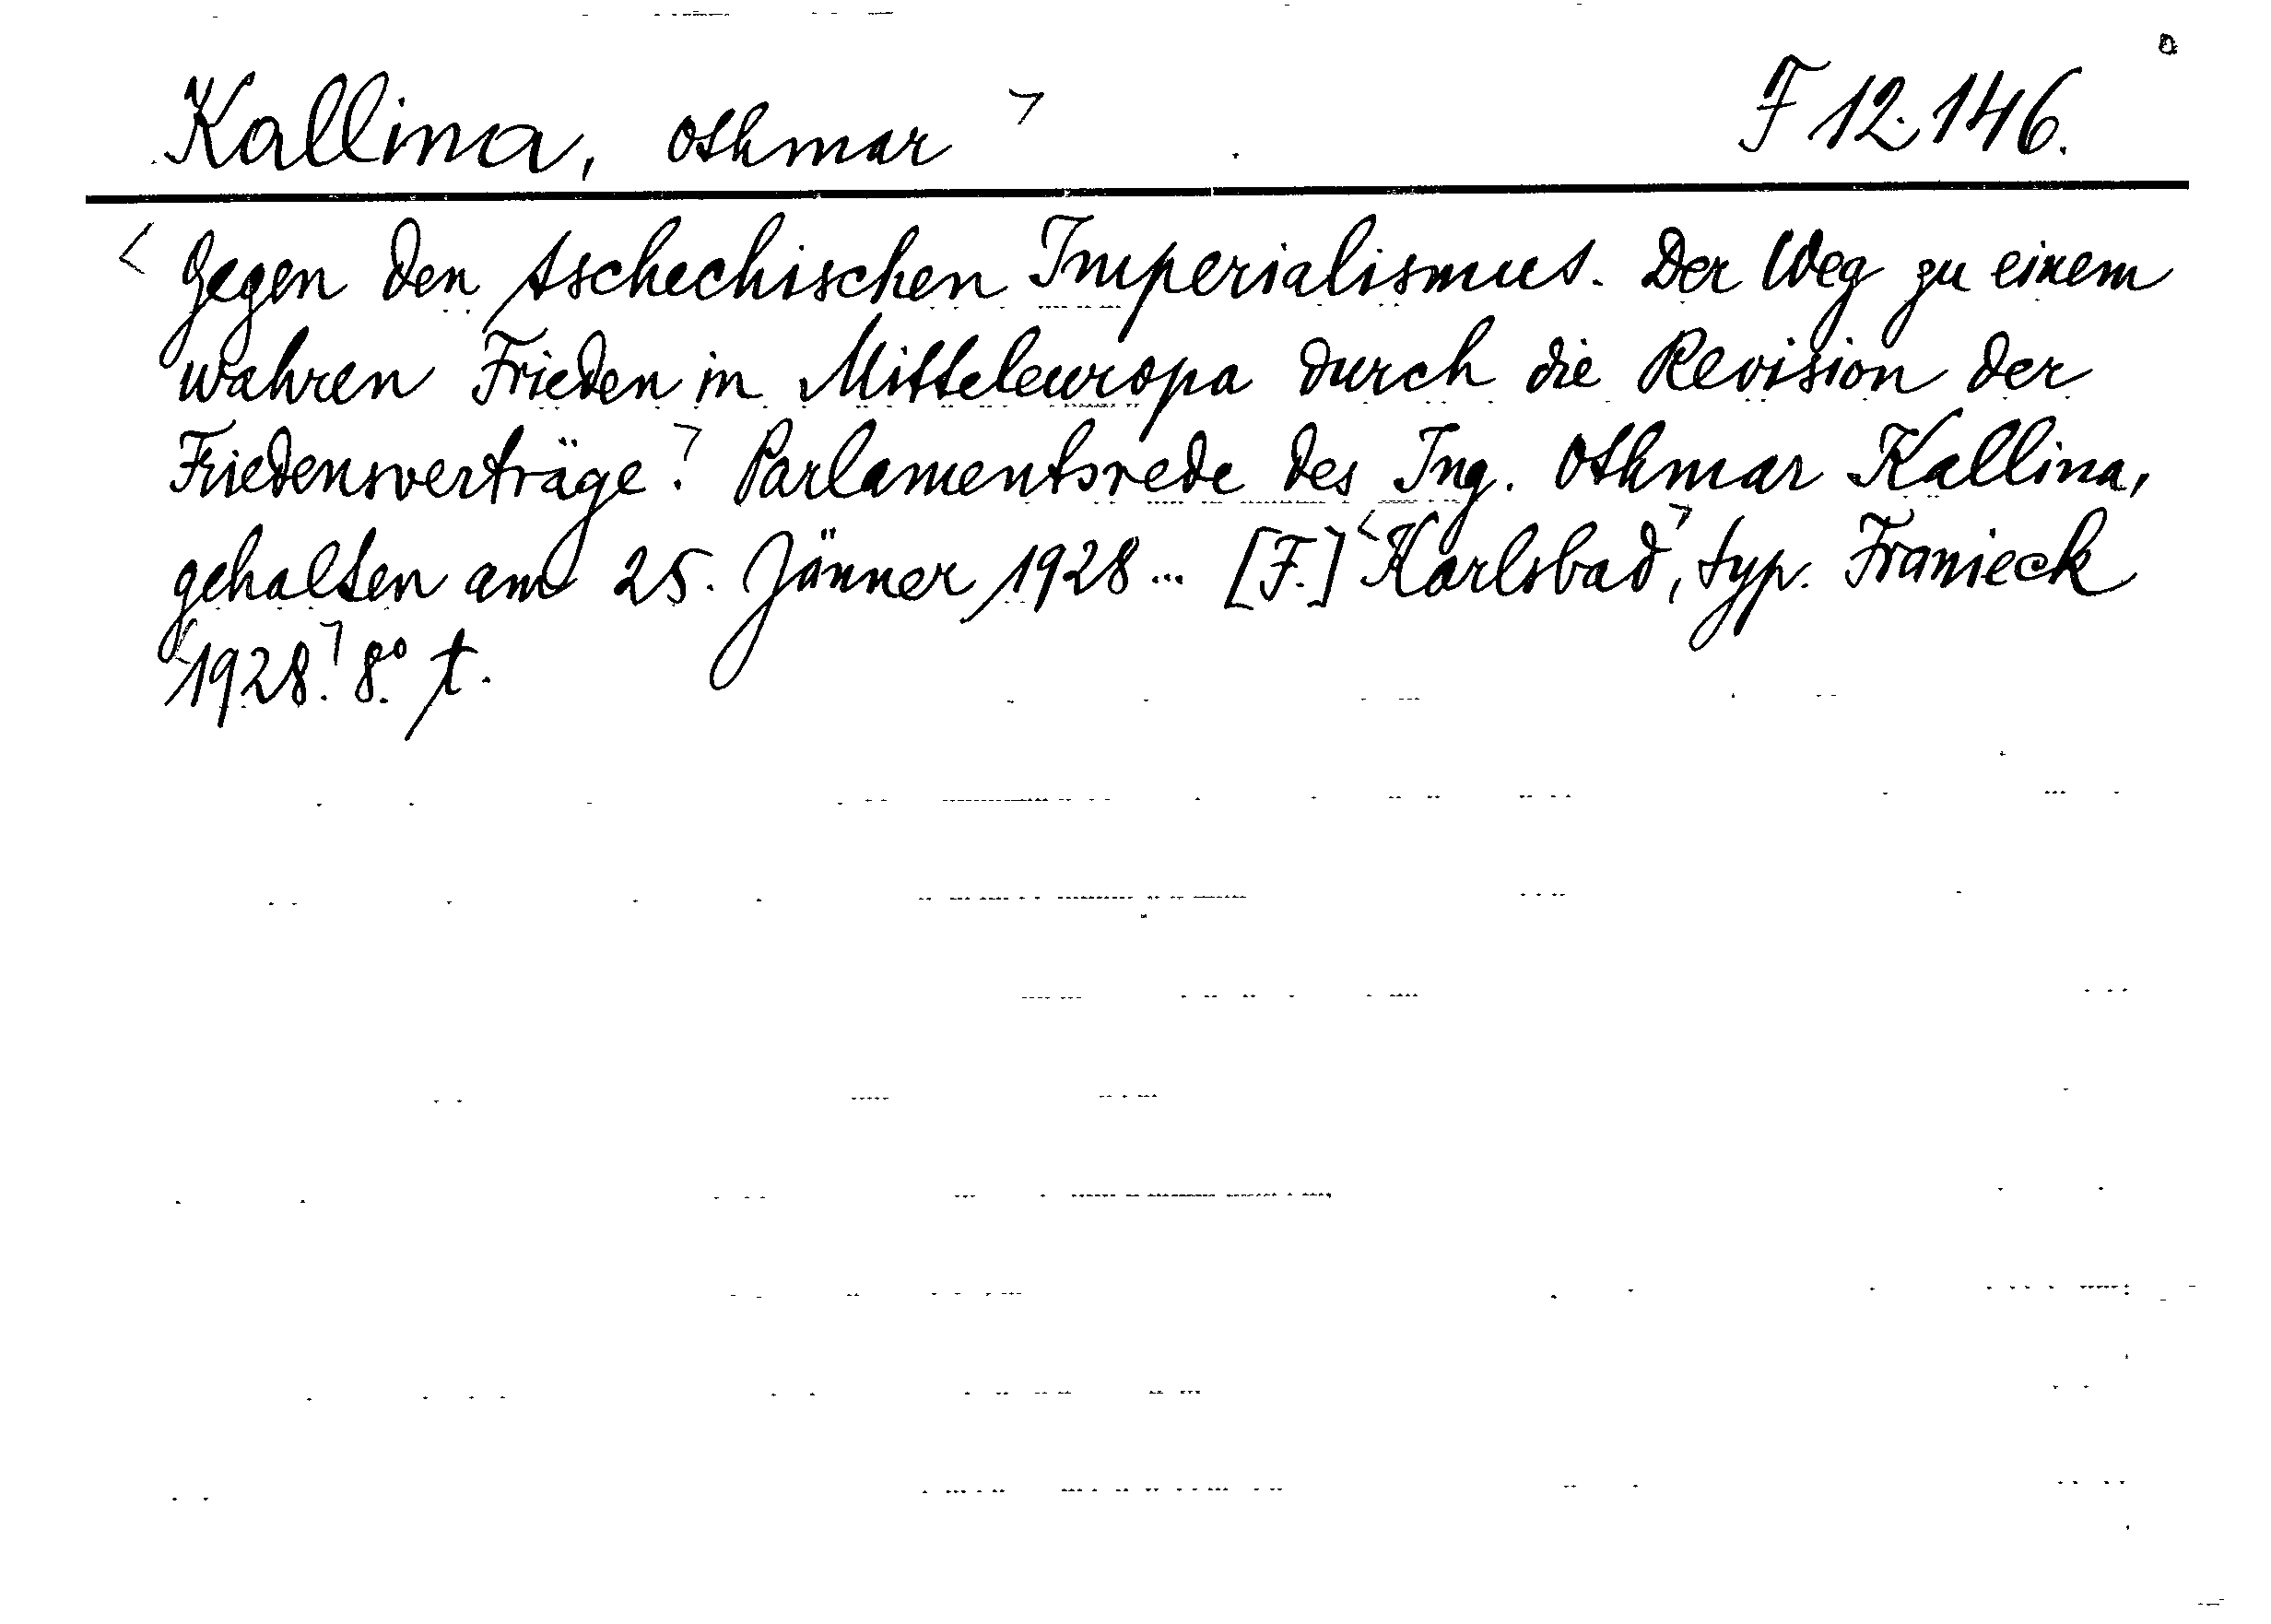 Kallina, Othmar ⁊ F 12.146.
< Gegen den tschechischen Imperialismus. Der Weg zu einem
wahren Frieden in Mitteleuropa durch die Revision der
Friedensverträge.⁊ Parlamentsrede des Ing. Othmar Kallina,
gehalten am 25. Jänner 1928 ... [F.] <Karlsbad⁊, typ. Franieck
<1928.⁊ 8° t.